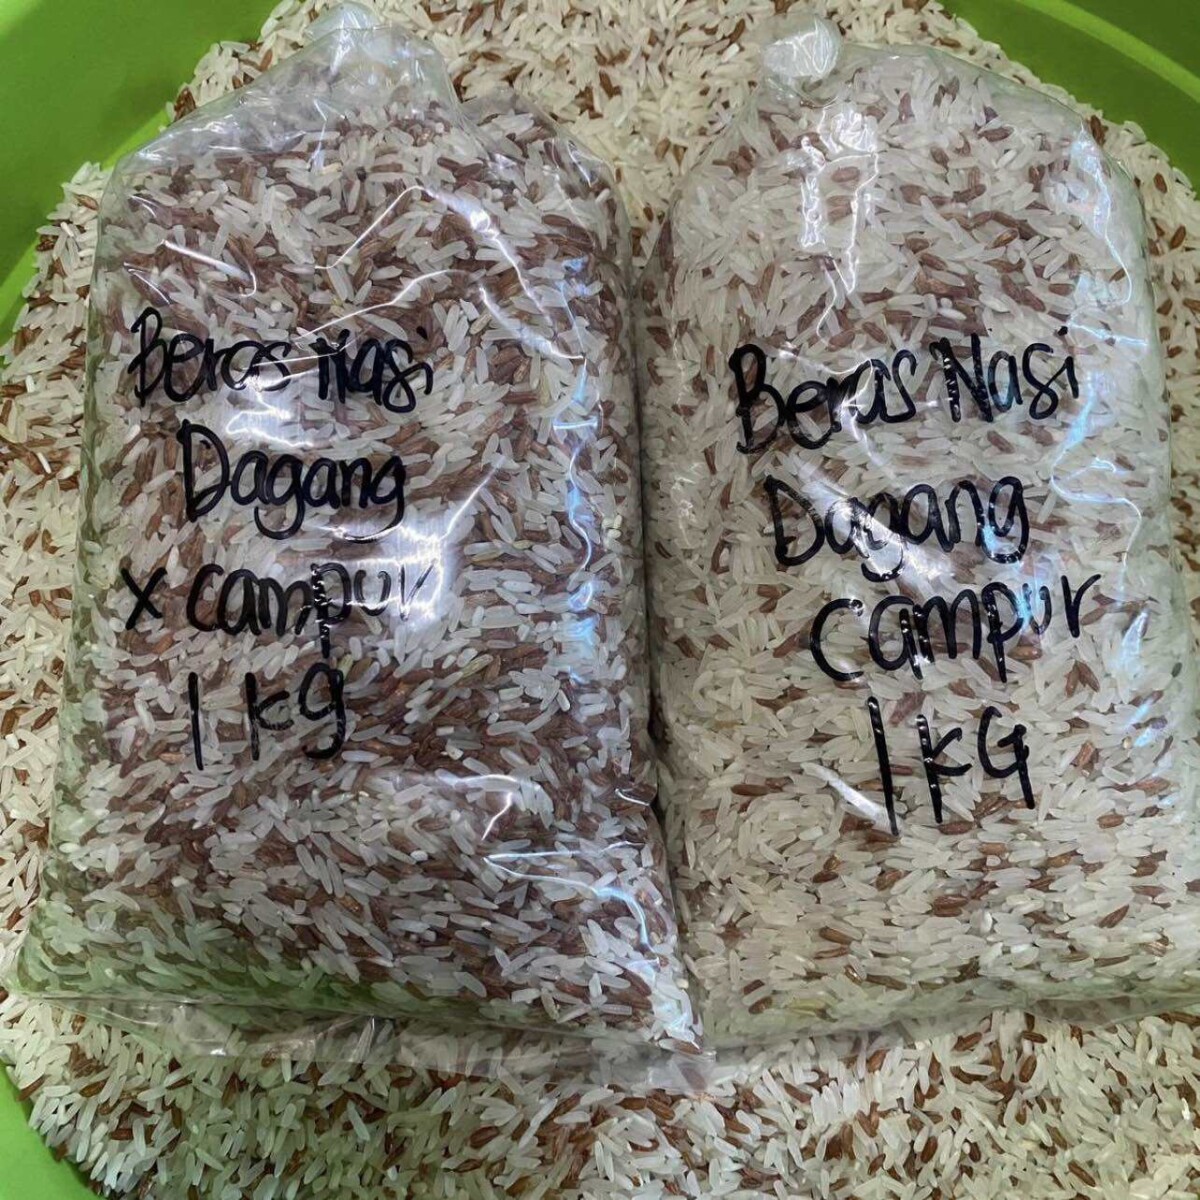 Beras Nasi
Dagang
x campur
1 kg
Beras Nasi
Dagang
campur
1 kG